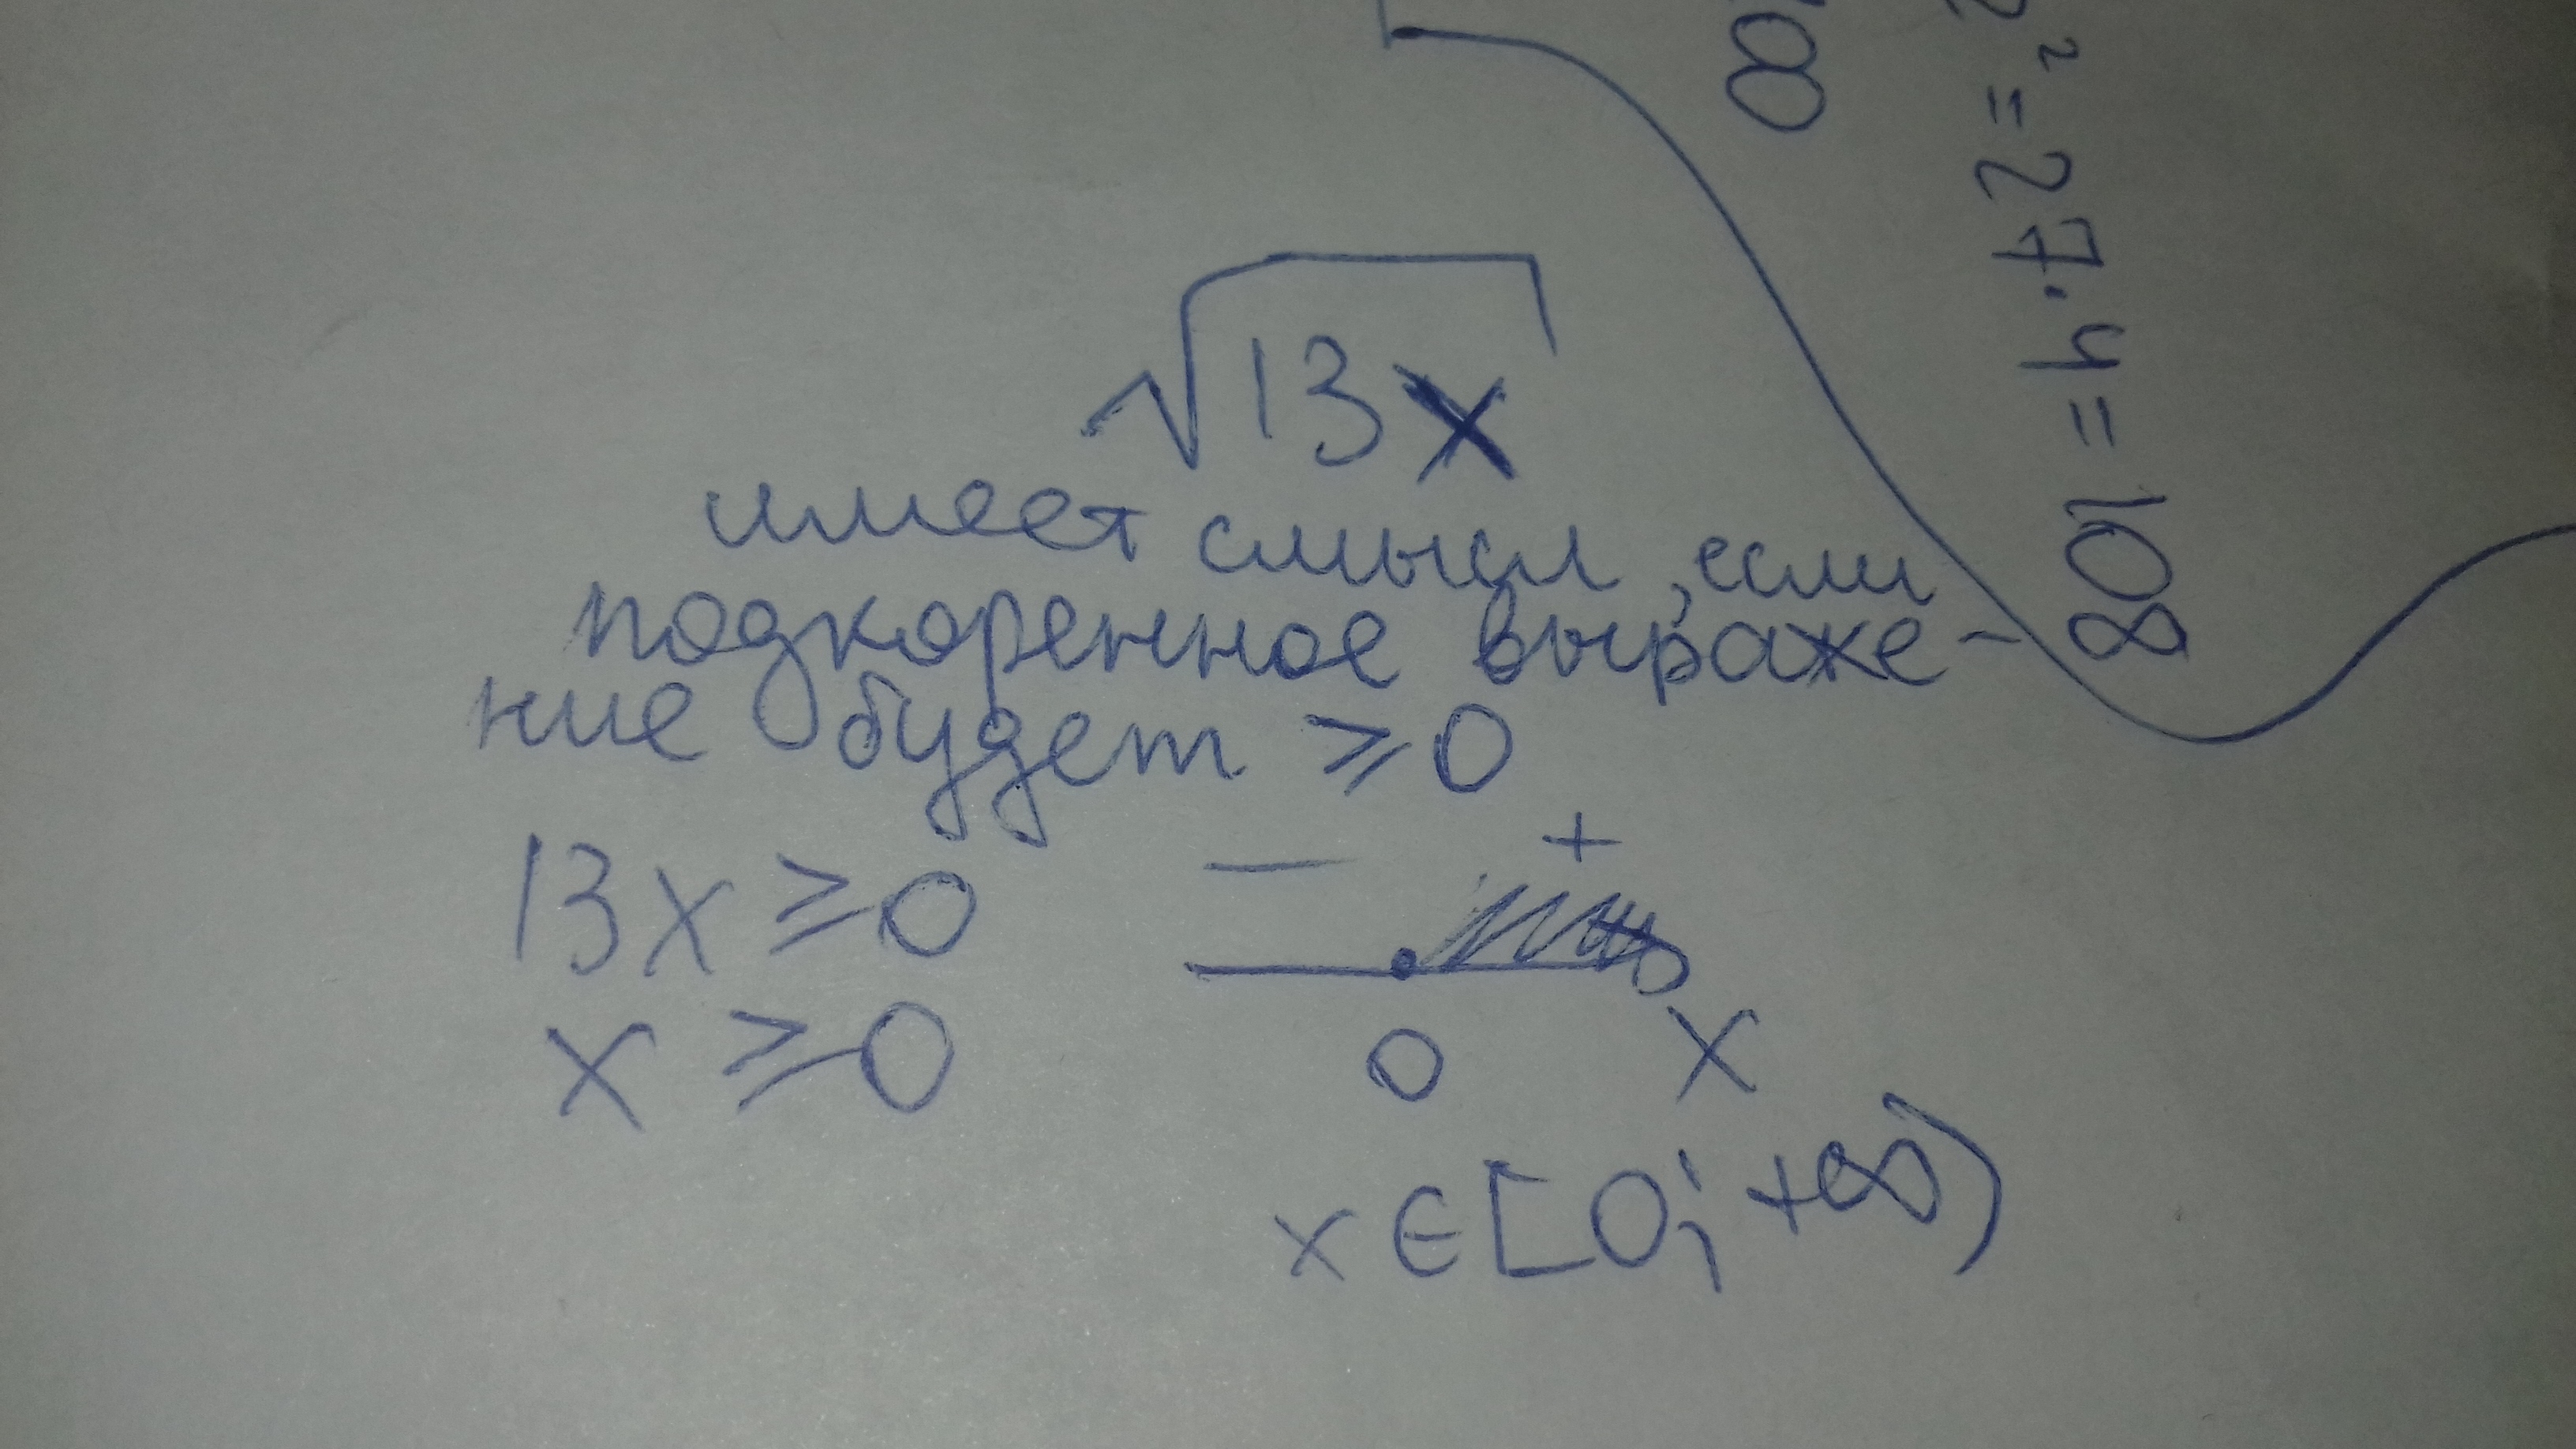 √13x
имеет смысл, если
подкоренное выраже-
ние будет ⩾0
13x ⩾0
— +
x ⩾0
0 x
x ∈ [0; +∞)
² = 27·4 = 108